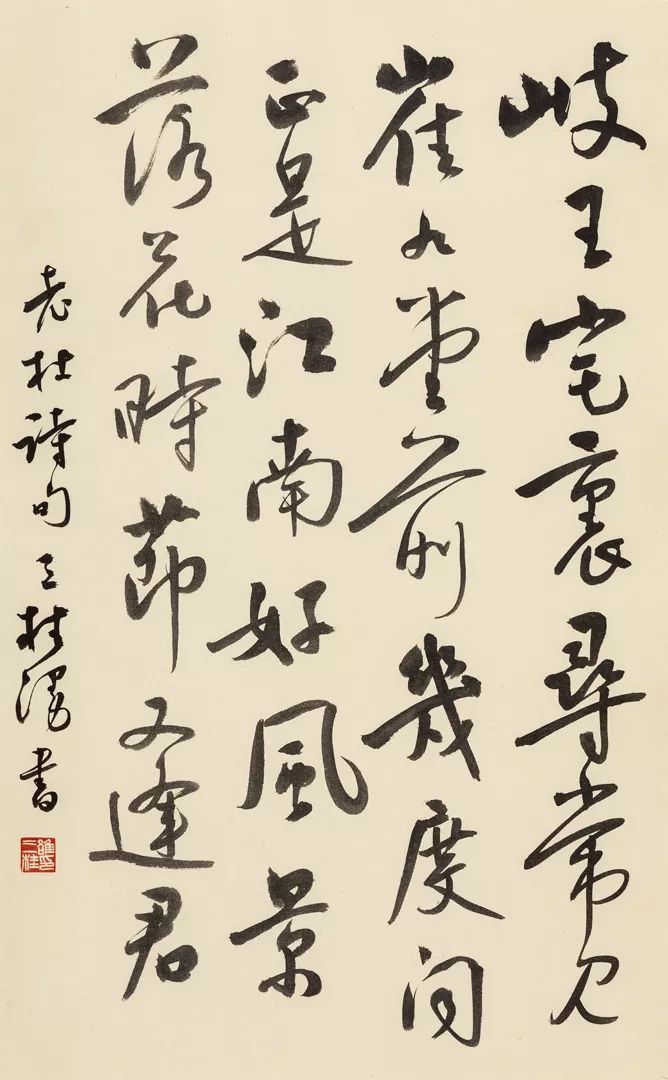 岐王宅裏尋常見
崔九堂前幾度聞
正是江南好風景
落花時節又逢君
老杜詩句 三桂書